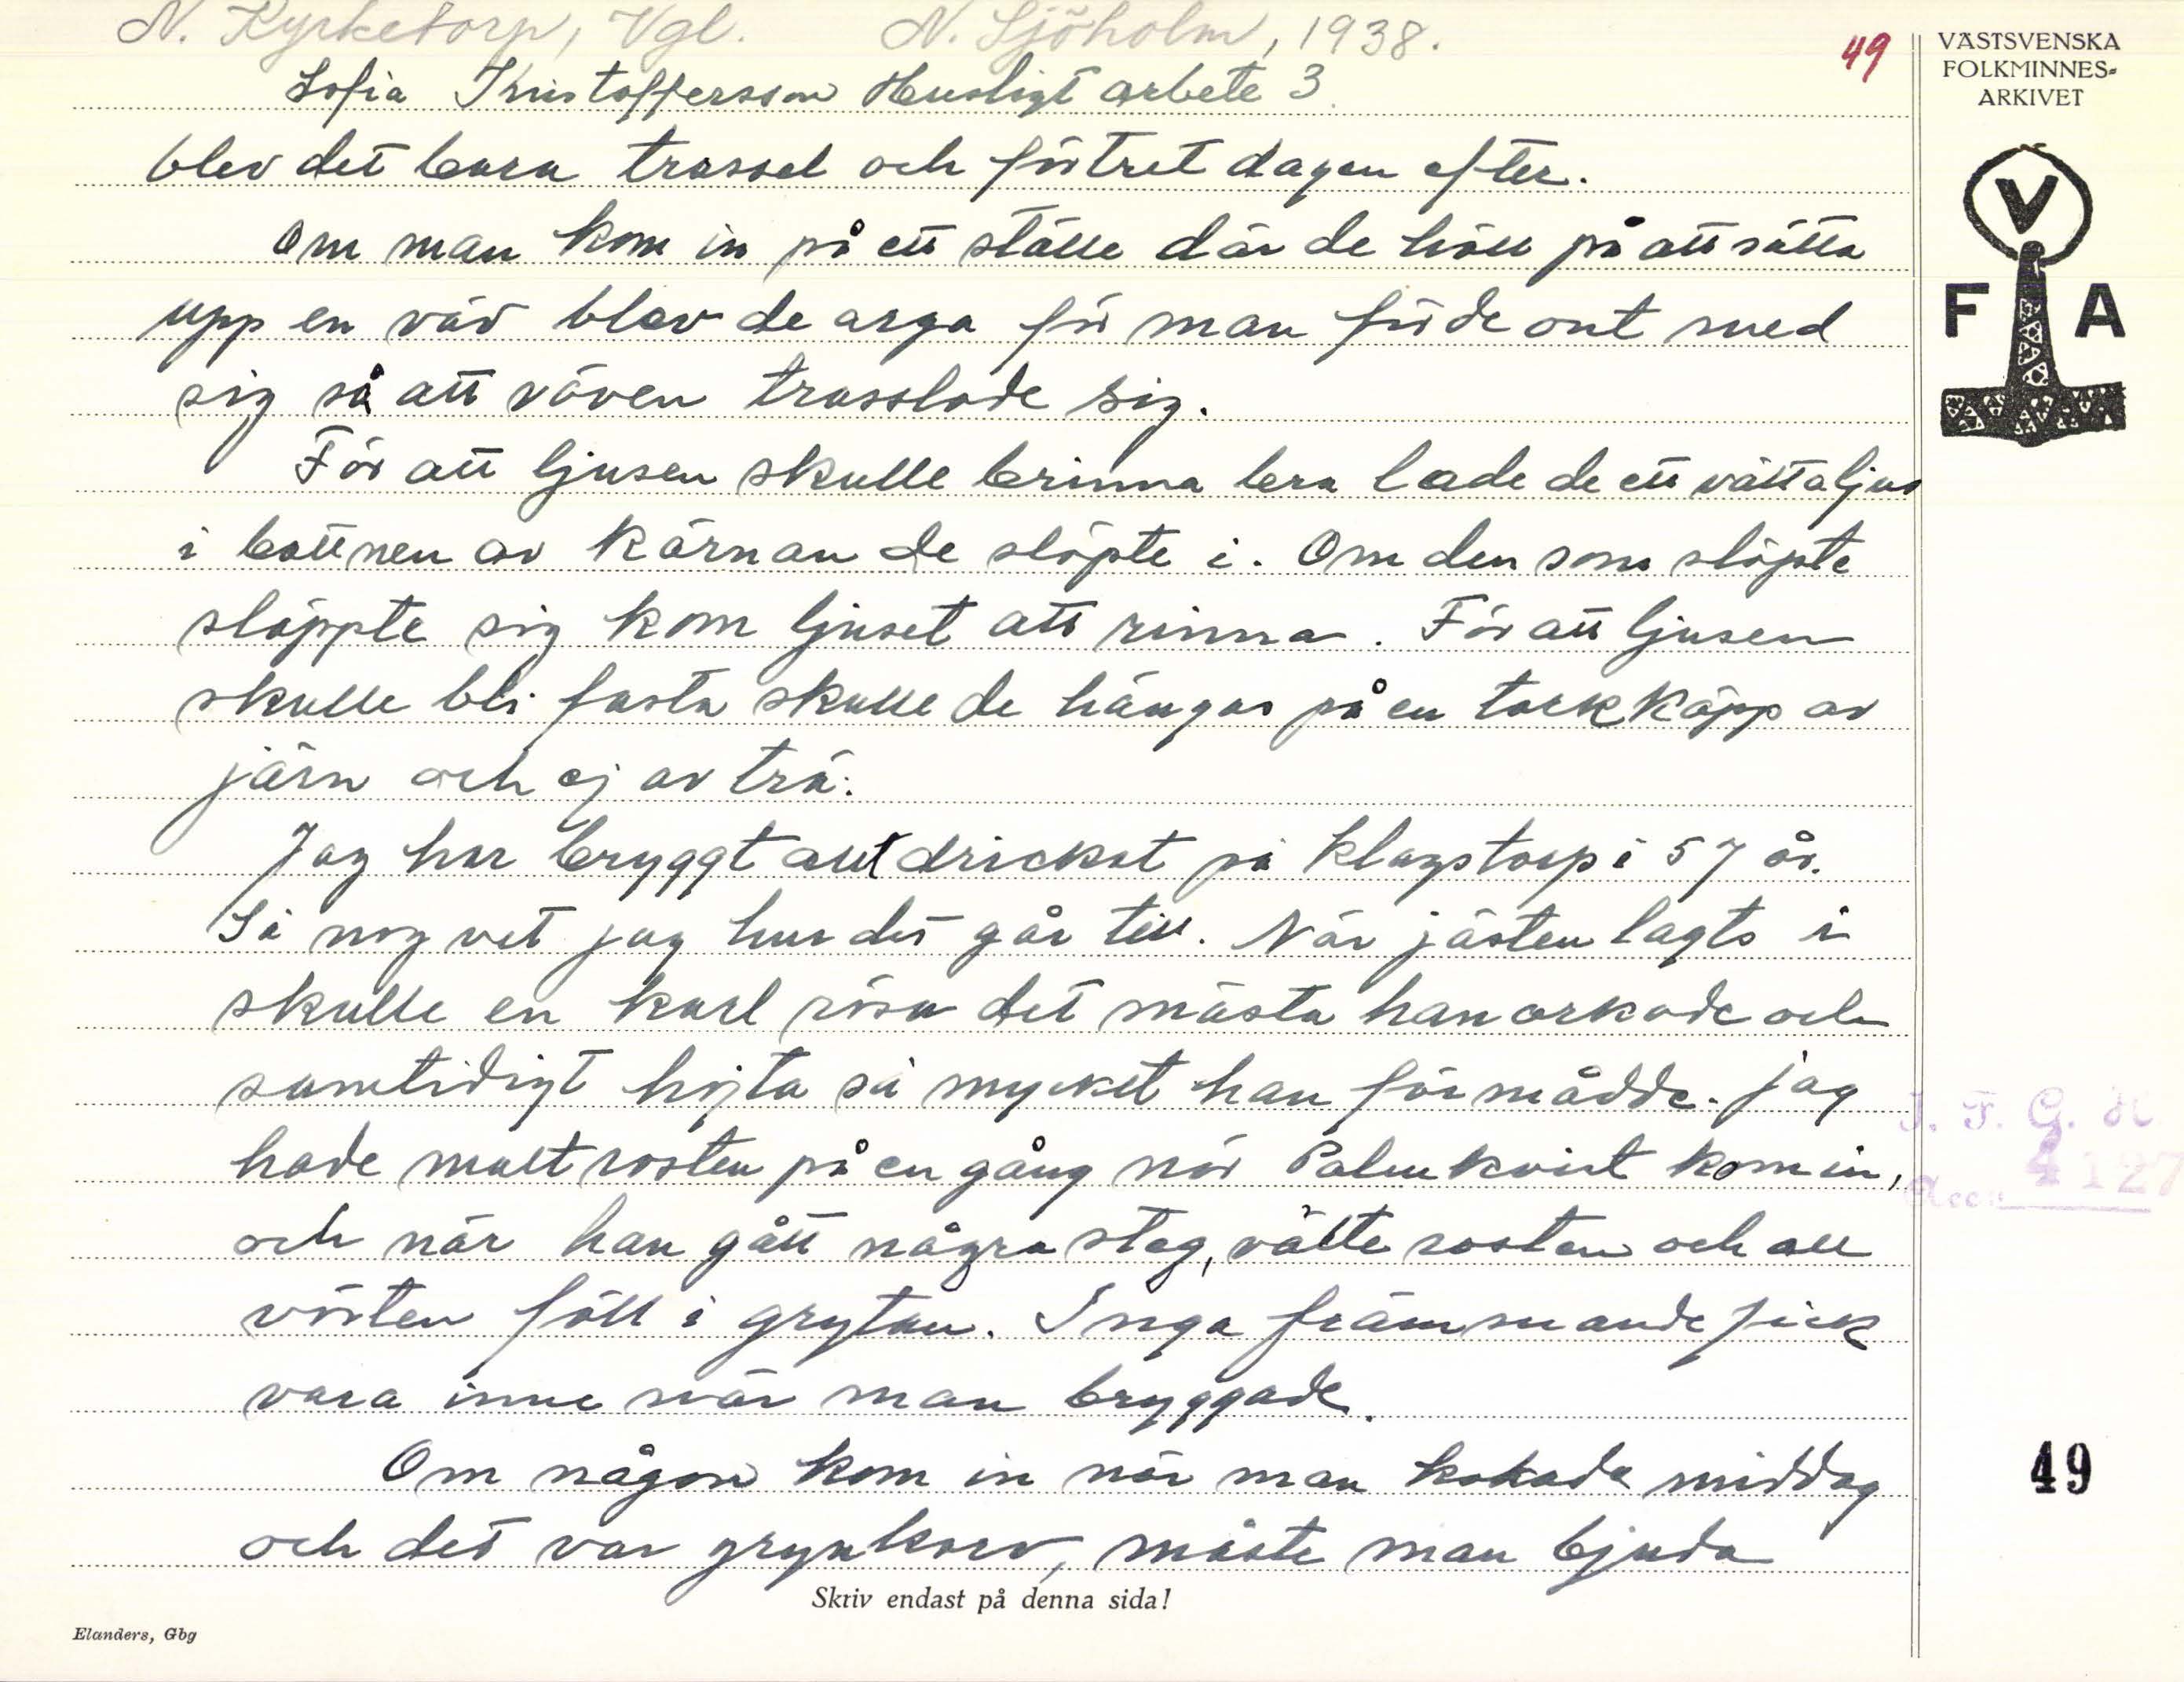 N. Kyrketorp, Vgl. N. Sjöholm, 1938.
49
VÄSTSVENSKA
FOLKMINNES-
ARKIVET
Sofia Kristoffersson Husligt arbete 3
blev det bara trassel och förtret dagen efter.
V
Om man kom in på ett ställe där de höll på att sätta
F A
upp en väv blev de arga för man förde ont med
sig så att väven trasslade sig.
För att ljusen skulle brinna bra lade de ett vättaljus
i bottnen av kärnan de stöpte i. Om den som stöpte
släppte sig kom ljuset att rinna. För att ljusen
skulle bli fasta skulle de hängas på en torkkäpp av
järn och ej av trä.
Jag har bryggt allt drickat på Klagstorp i 57 år.
Så nog vet jag hur det går till. När jästen lagts i
skulle en karl röra det mästa han orkade och
samtidigt hojta så mycket han förmådde. Jag
I. F. G. H
hade mält rosten på en gång när Palmkvist kom in,
Acc. 4127
och när han gått några steg, välte rosten och all
vörten föll i grytan. Inga främmande fick
vara inne när man bryggade.
Om någon kom in när man kokade middag
49
och det var grynkorv, måste man bjuda
Skriv endast på denna sida!
Elanders, Gbg